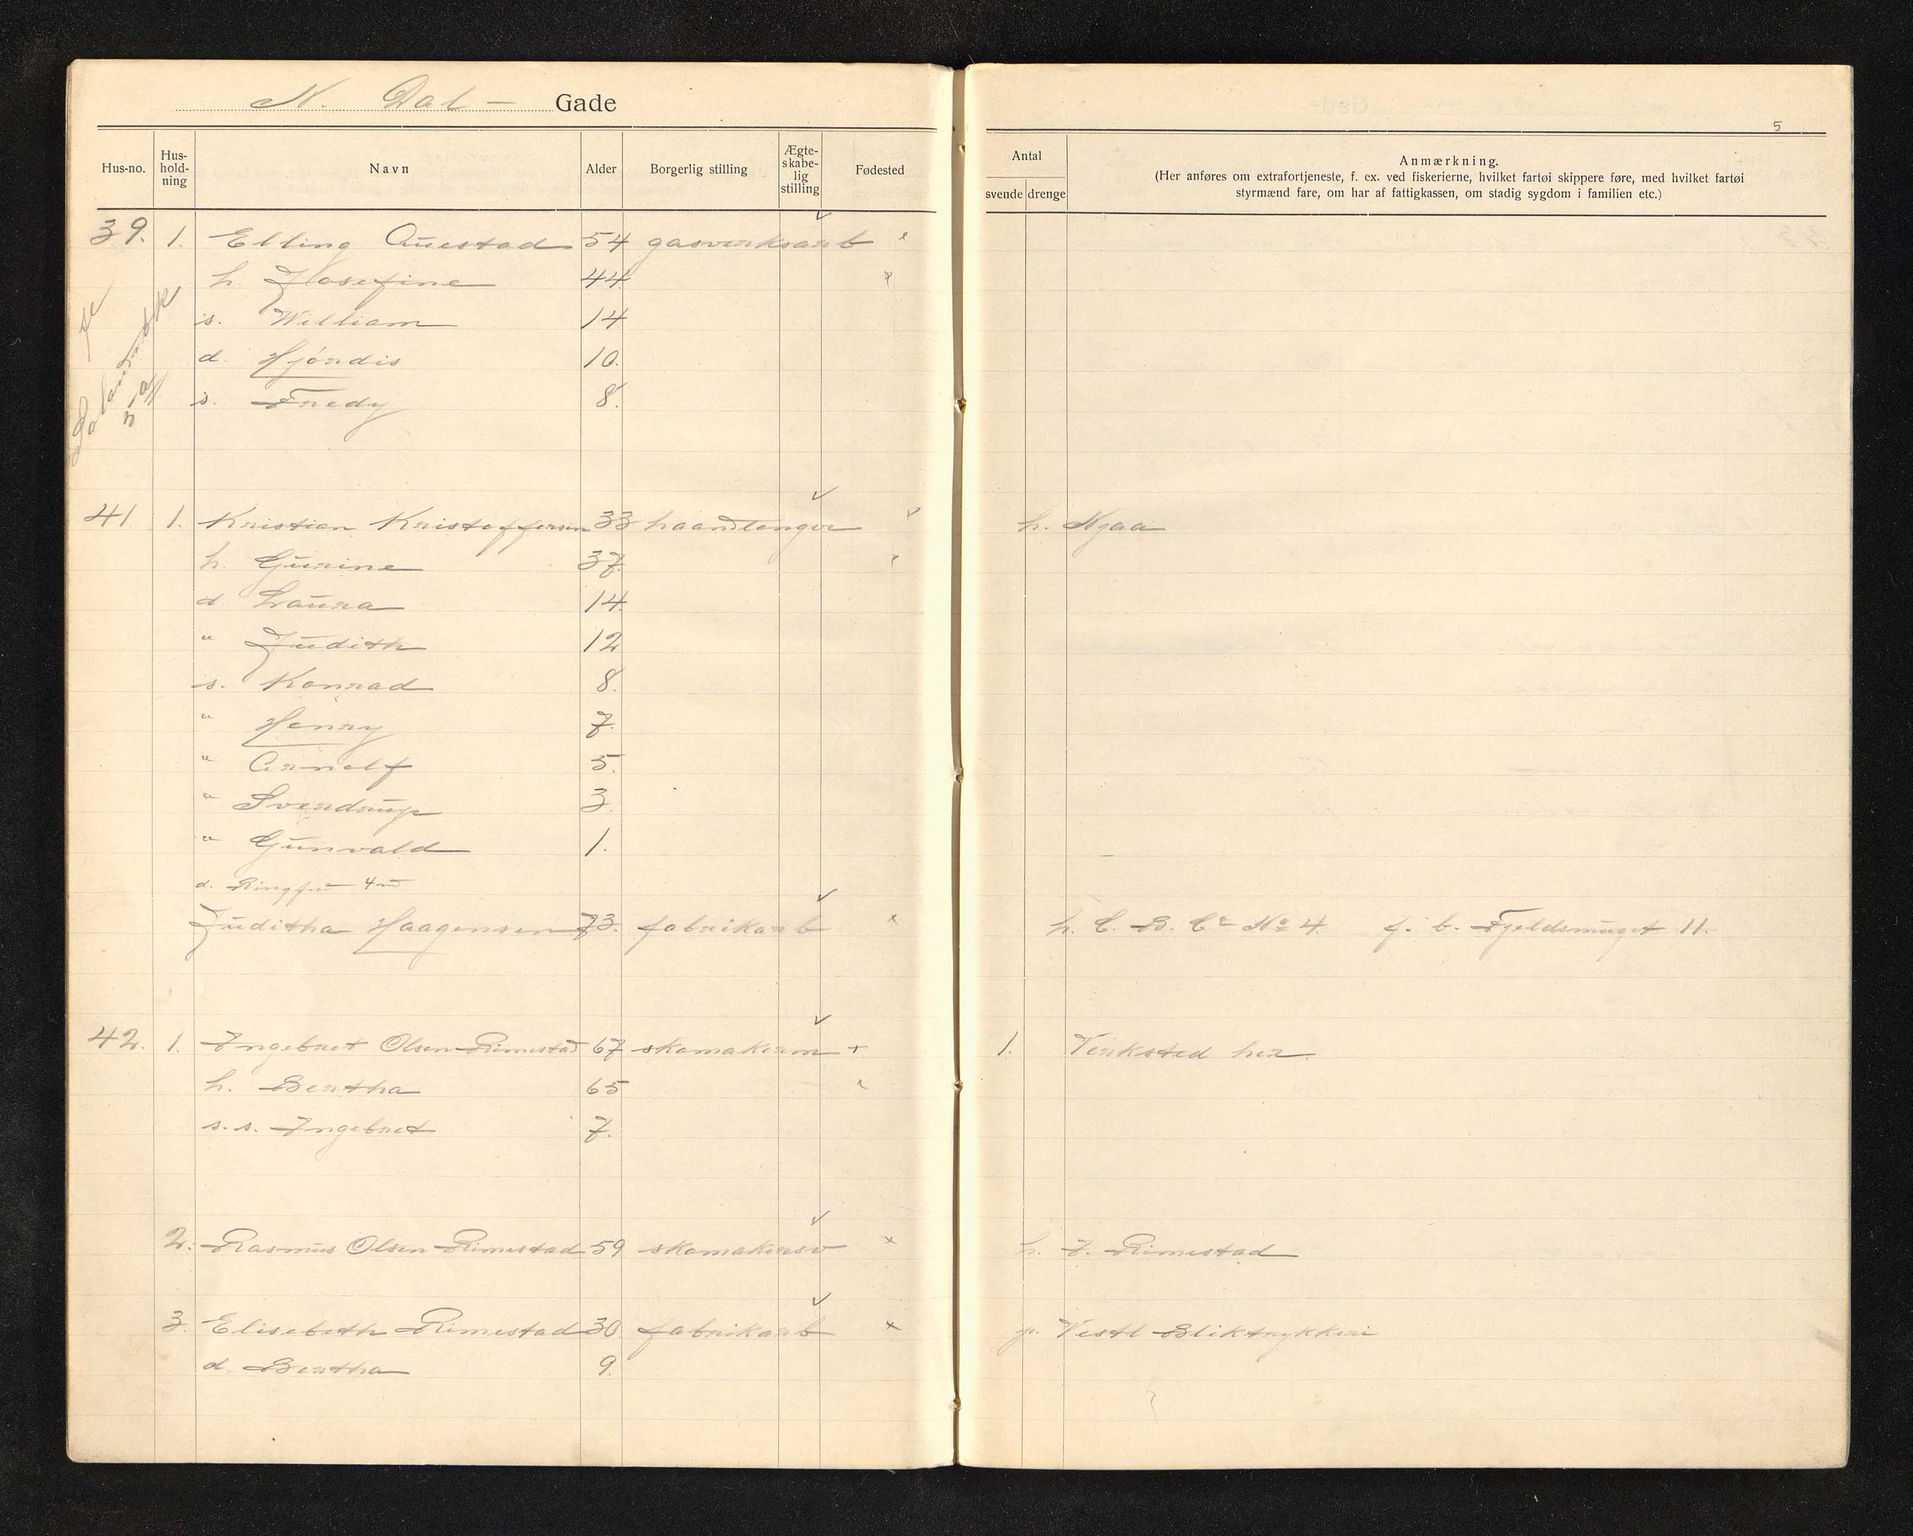 N. Dal - Gade
5
Hus-no. Hus-hold-ning Navn Alder Borgerlig stilling Ægte-skabe-lig stilling Fødested Antal svende drenge Anmærkning.
(Her anføres om extrafortjeneste, f. ex. ved fiskerierne, hvilket fartøi skippere føre, med hvilket fartøi
styrmænd fare, om har af fattigkassen, om stadig sygdom i familien etc.)
39. 1. Elling Auestad 54 gasverksarb
h. Josefine 44
s. William 14
d. Hjördis 10.
s. Fredy 8.
41 1. Kristian Kristoffersen 33 haandlanger h. Njaa
h. Gurine 37.
d. Laura 14.
" Judith 12
s. Konrad 8.
" Henry 7.
" Arnolf 5.
" Sverdrup 3.
" Gunvald 1.
d. 4
Juditha Haagensen 73. fabrikarb h. C. B. Co No 4. f. b. Fjeldsmuget 11.
42. 1. Ingebret Olsen Rimestad 67 skomakerm + 1. Verksted her.
h. Bertha 65
s. s. Ingebret 7.
2. Rasmus Olsen Rimestad 59 skomakersv x h. I. Rimestad
3. Elisebeth Rimestad 30 fabrikarb x p. Vestl Bliktrykkeri
d. Bertha 9.